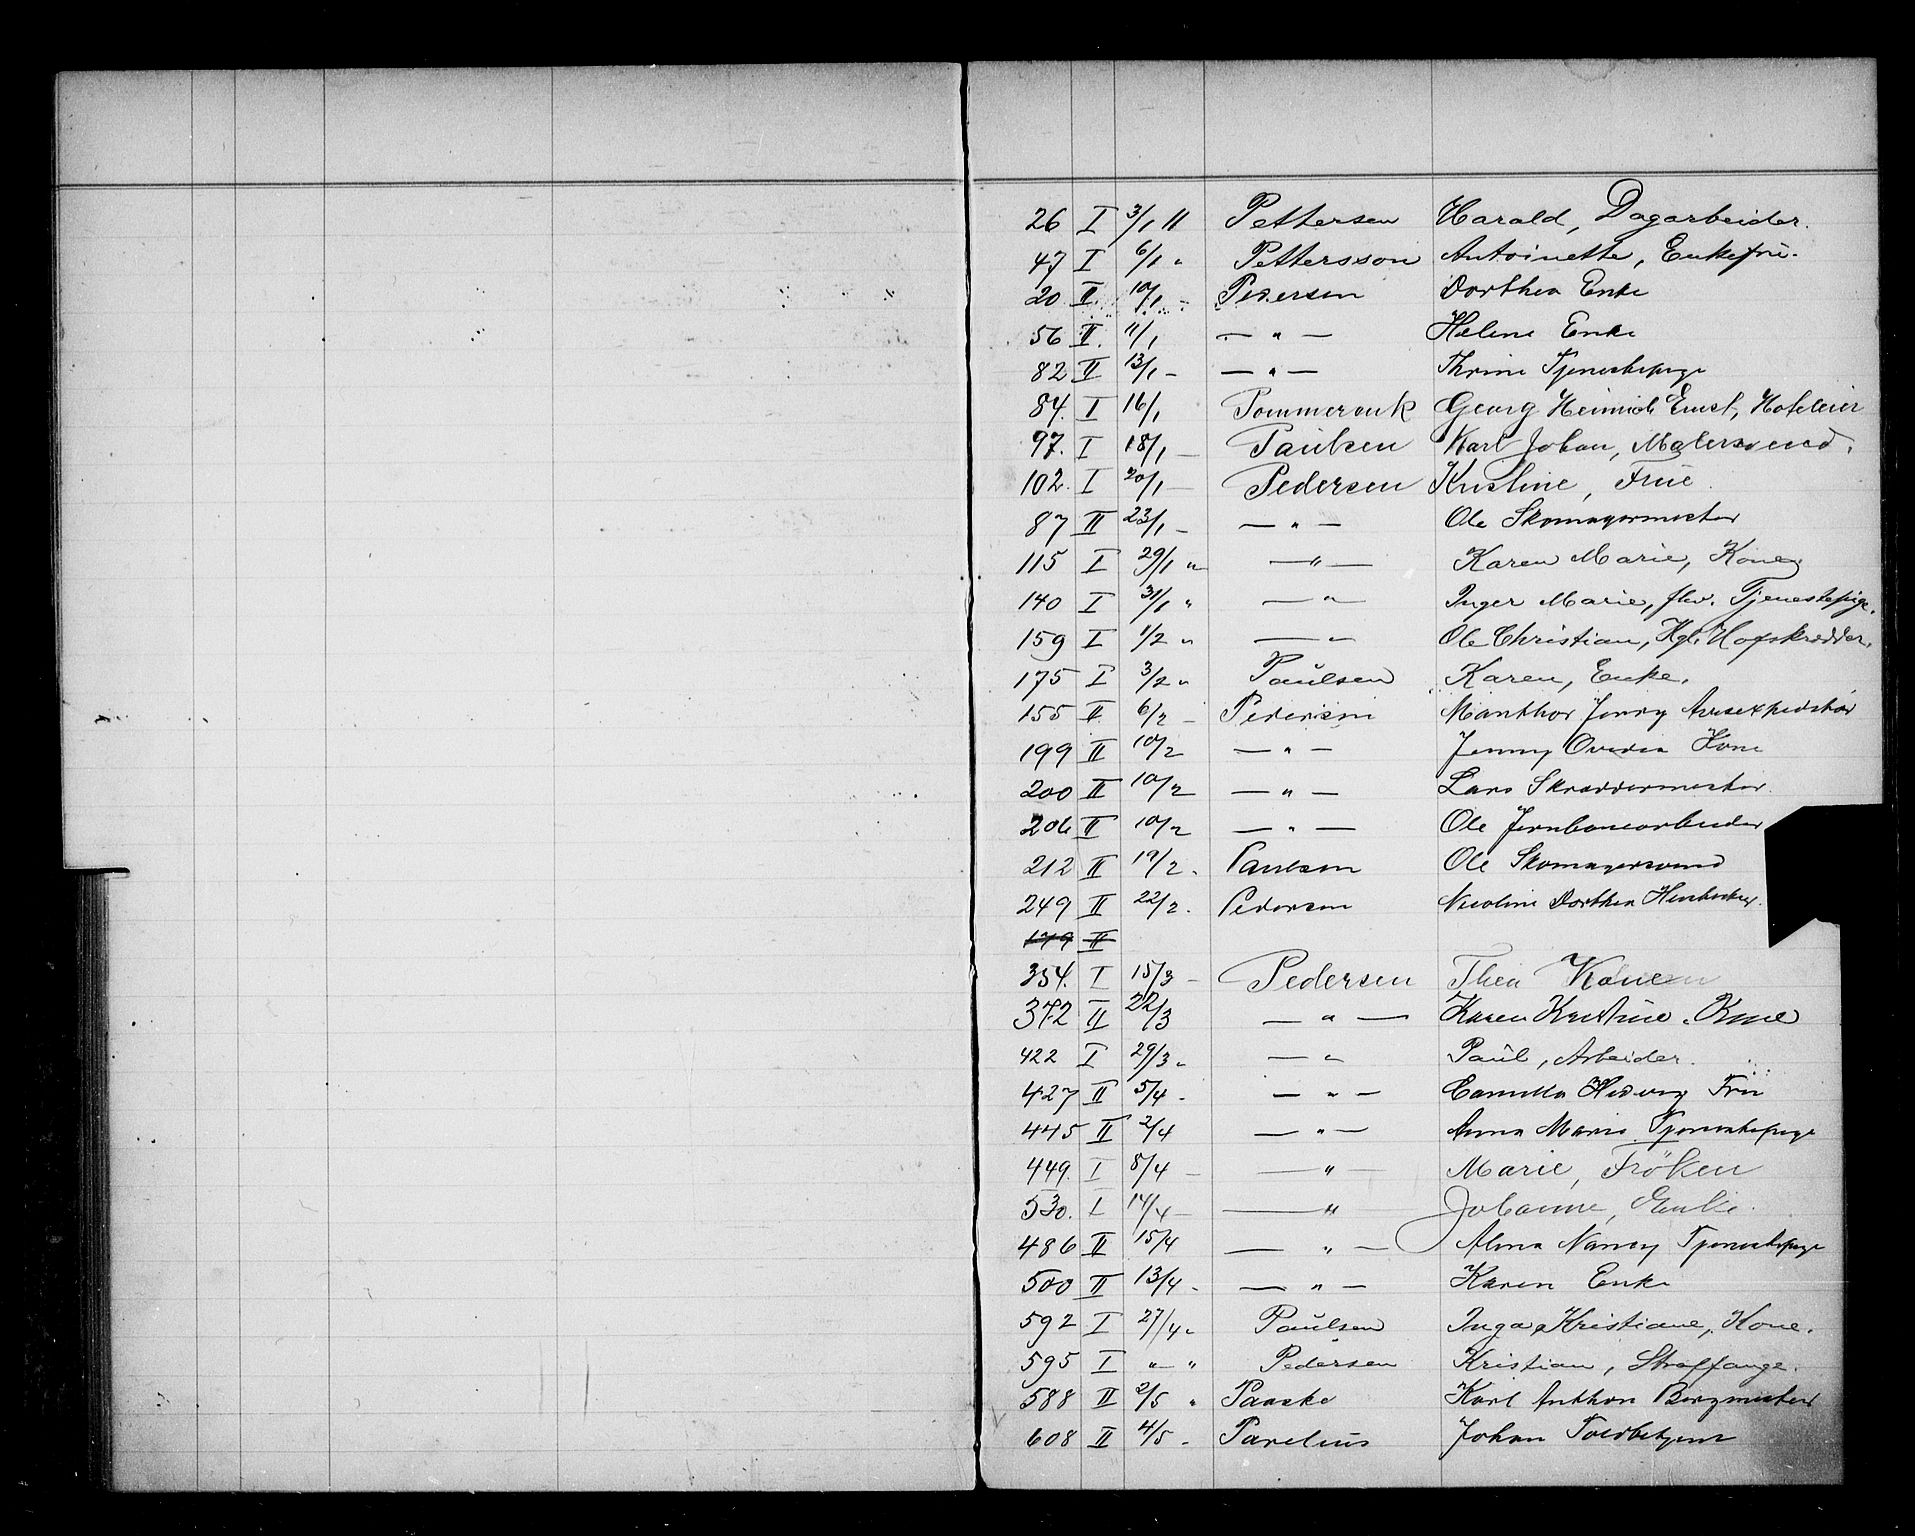 26 I 3/1 11 Pettersen Harald, Dagarbeider.
47 I 6/1 " Pettersson Antoinette, Enkefrü.
20 II 10/1 - Pedersen Dorthea Enke
56 II. 11/1 — " — Helene Enke
82 II 13/1 - — " — Thrine Tjenestepige
84. I 16/1 Pommerenk Georg Heinrich Ernst, Hoteleier
97. I 18/1 — Paulsen Karl Johan, Malersvend.
102. I 20/1 — Pedersen Kristine, Frue.
87 II 23/1 - — " — Ole Skomagermester
115 I 29/1 " — " — Karen Marie, Kone
140 I 31/1 " — " — Inger Marie, fhv. Tjenestepige.
159 I 1/2 " — " — Ole Christian, Kgl. Hofskrædder.
175 I 3/2 " Paulsen Karen, Enke.
155 II 6/2 - Pedersen Manthor Jenry Avisexpeditør
199 II 10/2 — " — Jenny Ovedia Kone
200 II 10/2 — " — Lars Skræddermester.
206 II 10/2 — " — Ole Jernbanearbeider
212 II 19/2 . Paulsen Ole Skomagersvend
249 II 22/2 . Pedersen Nicoline Dorthea
179 II
354. I 15/3 - Pedersen Thea Kone
372 II 22/3 — " — Karen Kristine. Kone
422 I 29/3 " — " Paul, Arbeider.
427 II 5/4 - — " — Camilla Hedevig Frü
445 II 2/4 — " — Anna Marie Tjenestepige
449. I 8/4 — — " — Marie, Fröken
530. I 14/4 — — " Johanne, Enke.
486 II 15/4 — " — Alma Nancy Tjenestepige
500 II 13/4 - — " — Karen Enke
592 I 27/4 " Paulsen Inga Kristiane, Kone.
595 I " " Pedersen Kristian, Straffange.
588 II 2/5 " Paaske Karl Anthon Bergmester
608 II 4/5 - Parelius Johan Toldbetjent